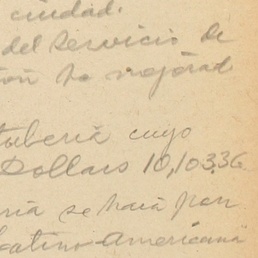 ciudad.
del servicio de
ha mejorad
tuberia cuyo
Dollars 10,103.36
ria se hará por
Latino-Americana